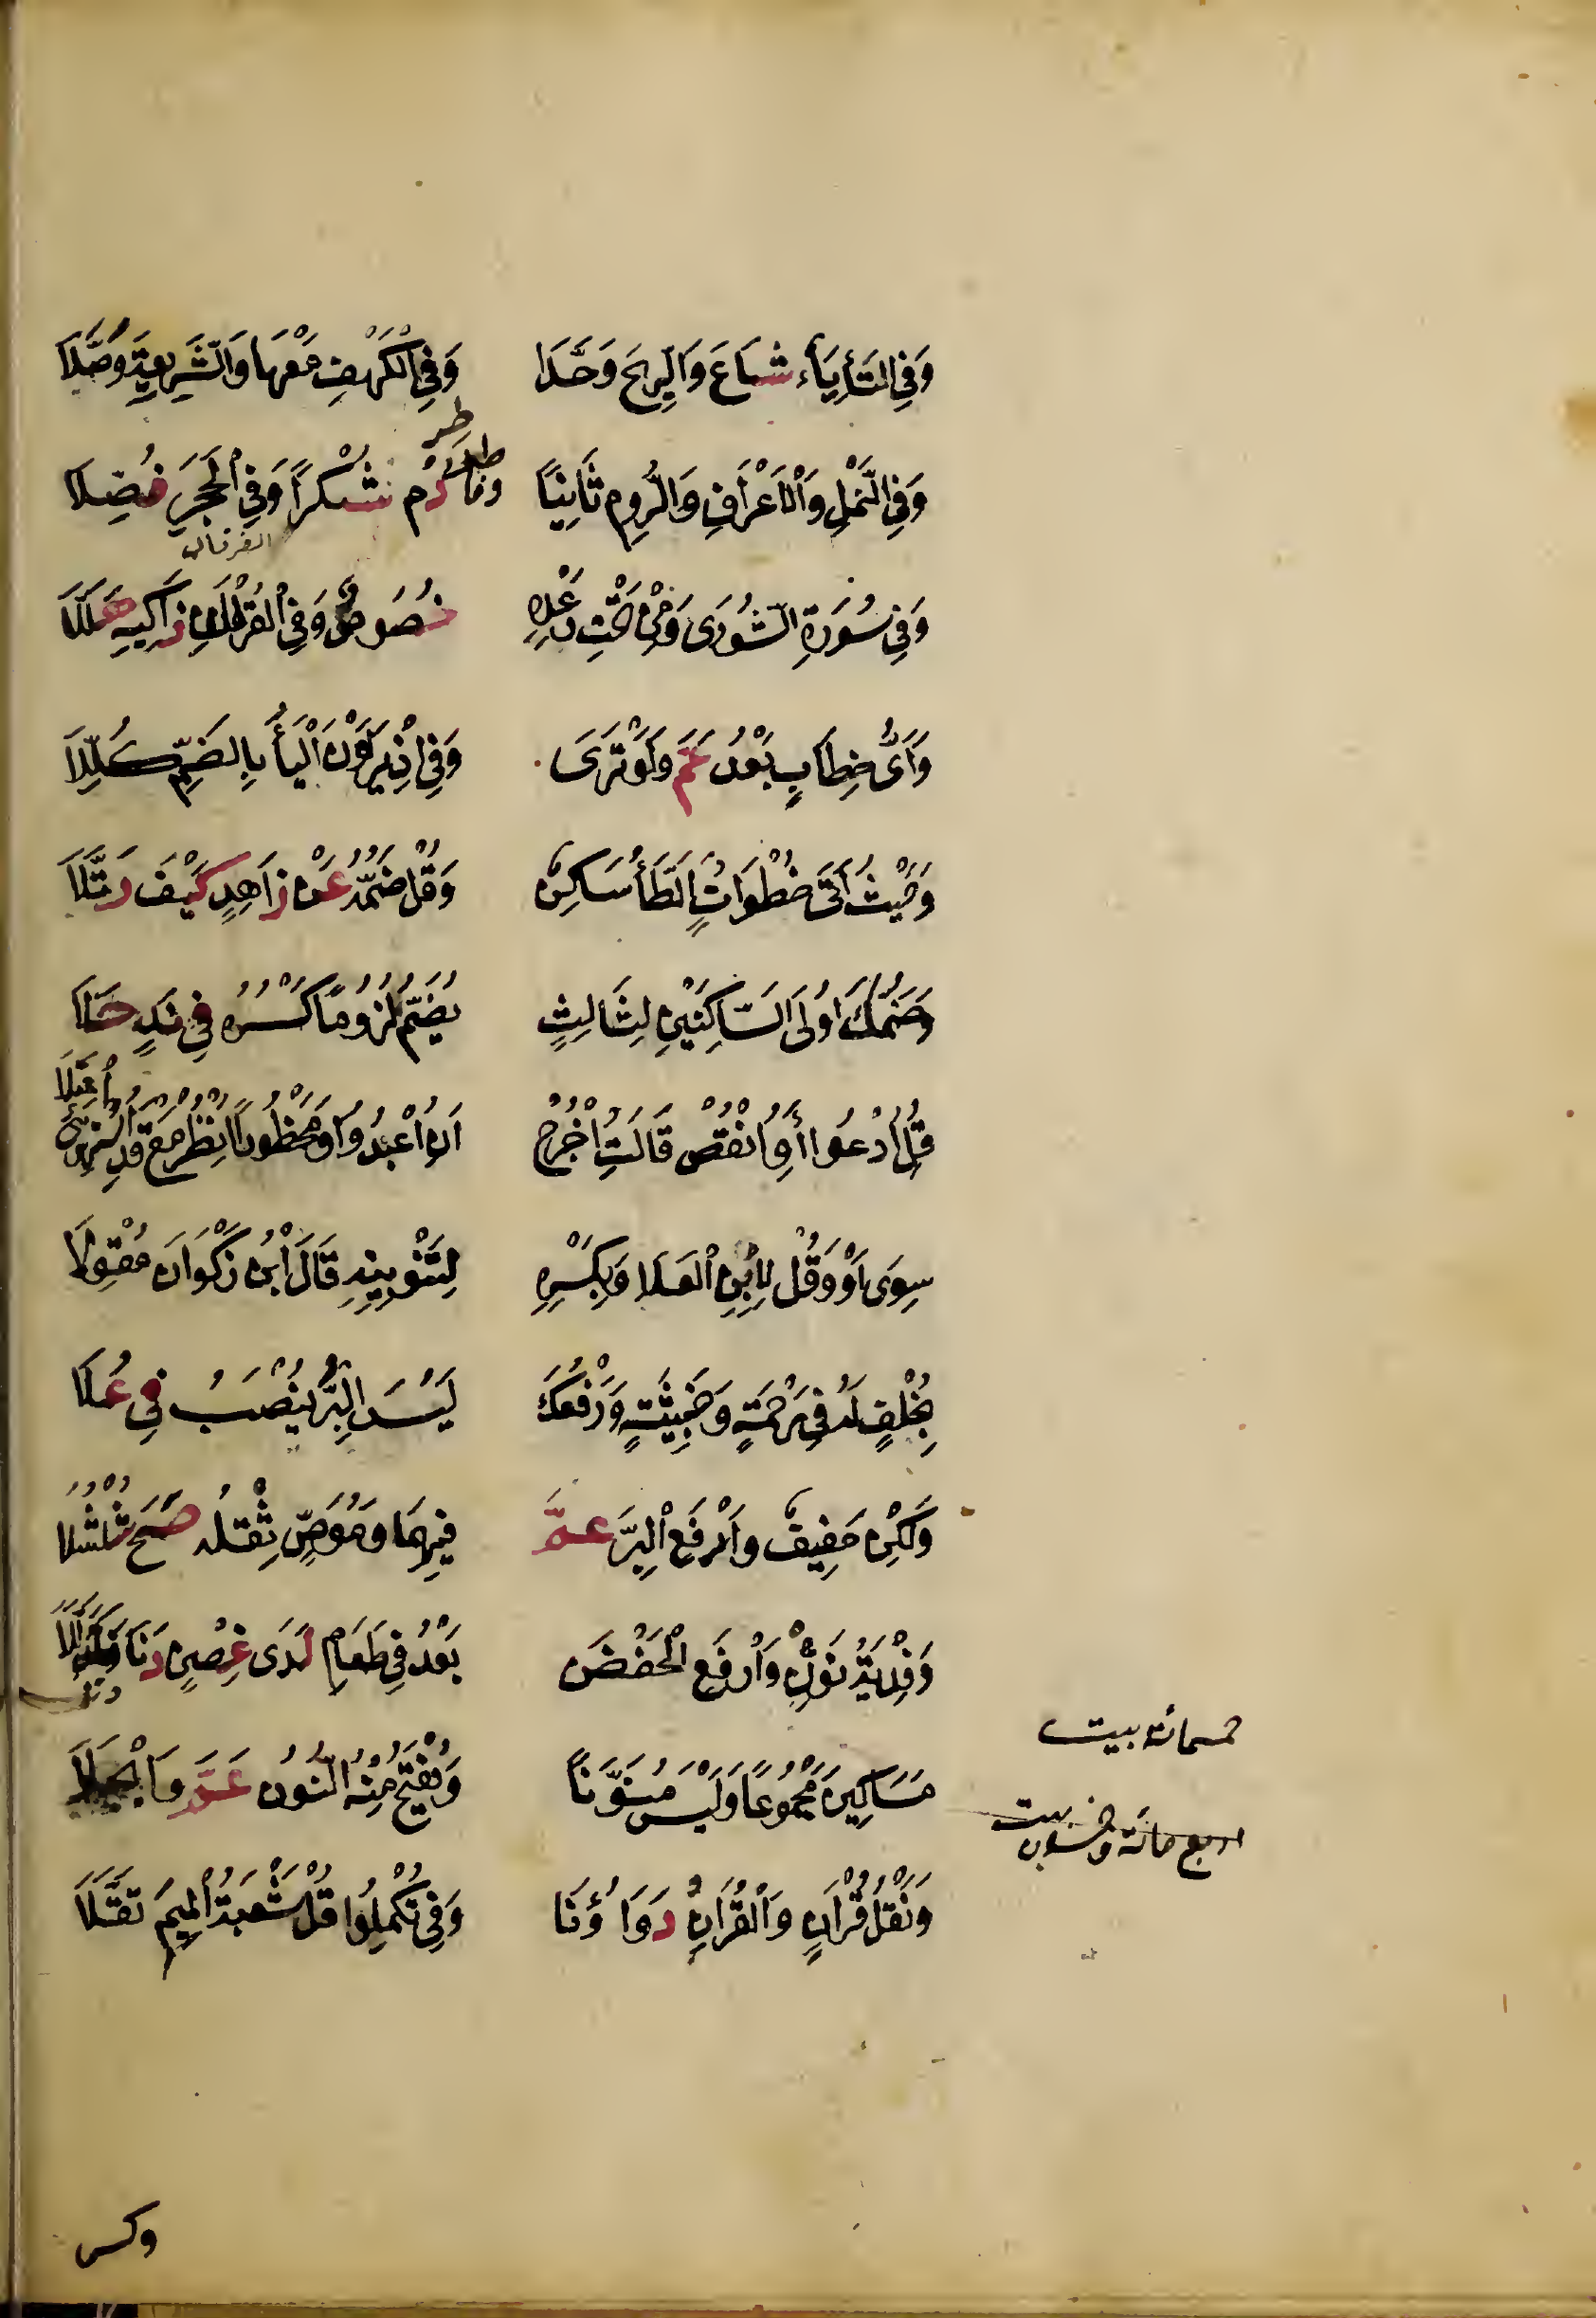 وَفِي التَّاءِ يَاءٌ شَاعَ وَالرِّيحَ وَحَّدَا وَفِي الْكَهْفِ مَعْهَا وَالشَّرِيعَةِ وَصَّلَا
وَفِي النَّمْلِ وَالْأَعْرَافِ وَالرُّومِ ثَانِيًا وَفَاطِرِ دُمْ شُكْرًا وَفِي الْحِجْرِ فُصِّلَا
الفرقان
وَفِي سُورَةِ الشُّورَى وَمِنْ تَحْتِ رَعْدِهِ خُصُوصٌ وَفِي الْفُرْقَانِ زَاكِيهِ هَلَّلَا
وَأَيُّ خِطَابٍ بَعْدُ عَمَّ وَلَوْ تَرَى وَفِي إِذْ يَرَوْنَ الْيَاءُ بِالضَّمِّ كُلِّلَا
وَحَيْثُ أَتَى خُطْوَاتٌ الطَّاءُ سَاكِنٌ وَقُلْ ضَمُّهُ عَنْ زَاهِدٍ كَيْفَ رَتَّلَا
وَضَمُّكَ أُولَى السَّاكِنَيْنِ لِثَالِثٍ يُضَمُّ لُزُومًا كَسْرُهُ فِي نَدٍ حَلَا
قُلِ ادْعُوا أَوِ انْقُصْ قَالَتِ اخْرُجْ أَنِ اعْبُدُوا وَمَحْظُورًا انْظُرْ مَعْ قَدِ اسْتُهْزِئَ اعْتَلَا
سِوَى أَوْ وَقُلْ لِابْنِ الْعَلَا وَبِكَسْرِهِ لِتَنْوِينِهِ قَالَ ابْنُ ذَكْوَانَ مُقْوِلَا
بِخُلْفٍ لَهُ فِي رَحْمَةٍ وَخَبِيثَةٍ وَرَفْعُكَ لَيْسَ الْبِرُّ يُنْصَبُ فِي عُلَا
وَلَكِنْ خَفِيفٌ وَارْفَعِ الْبِرَّ عَمَّ فِيهِمَا وَمُوَصٍّ ثِقْلُهُ صَحَّ شُلْشُلَا
وَفِدْيَةُ نَوِّنْ وَارْفَعِ الْخَفْضَ بَعْدُ فِي طَعَامِ لَدَى غُصْنٍ دَنَا وَتَذَلَّلَا
خمسمائة بيت
مَسَاكِينَ مَجْمُوعًا وَلَيْسَ مُنَوَّنًا وَيُفْتَحُ مِنْهُ النُّونُ عَمَّ وَأَبْجَلَا
اربع مائة وخمسون بيت
وَنَقْلُ قُرْآنٍ وَالْقُرْآنِ دَوَاؤُنَا وَفِي تُكْمِلُوا قُلْ شُعْبَةُ الْمِيمَ ثَقَّلَا
وكسر